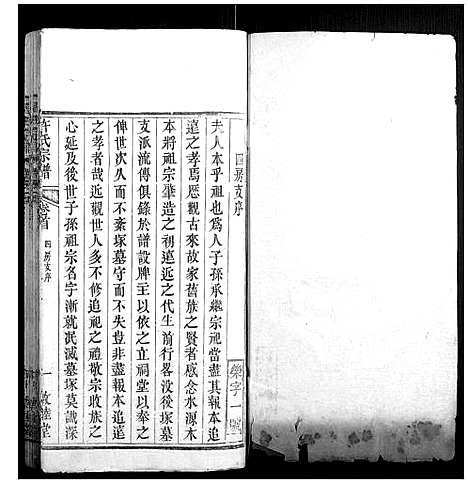 四房支序
夫人本乎祖也凡為人子孫承繼宗祠當盡其報本追
遠之孝焉歷觀古來故家舊族之賢者感念水源木
本將祖宗肇造之初遠近之代生前行畧没後塚墓
支派流傳俱錄於譜設牌主以依之立祠堂以奉之
俾世次久而不紊塚墓守而不失豈非盡報本追遠
之孝者哉近觀世人多不修追祀之禮敬宗收族之
心延及後世子孫祖宗名字漸就泯滅墓塚莫識深
許氏宗譜
卷首
四房支序
一
敦睦堂
榮字一號